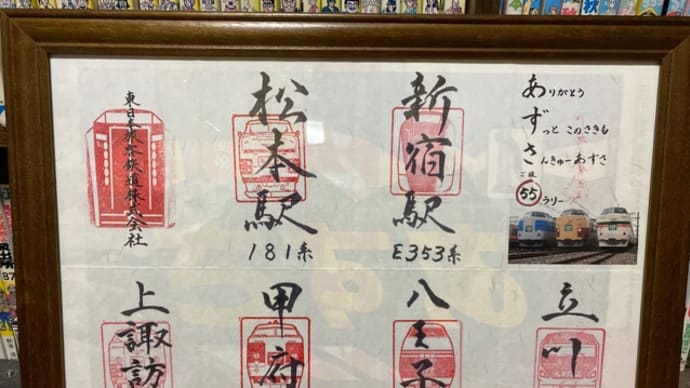 ありがとう
ずっと このさきも
さんきゅーあずさ
ご縁
55 ラリー
新宿駅
E353系
松本駅
181系
東日本旅客鉄道株式会社
立川
八王子
甲府
上諏訪